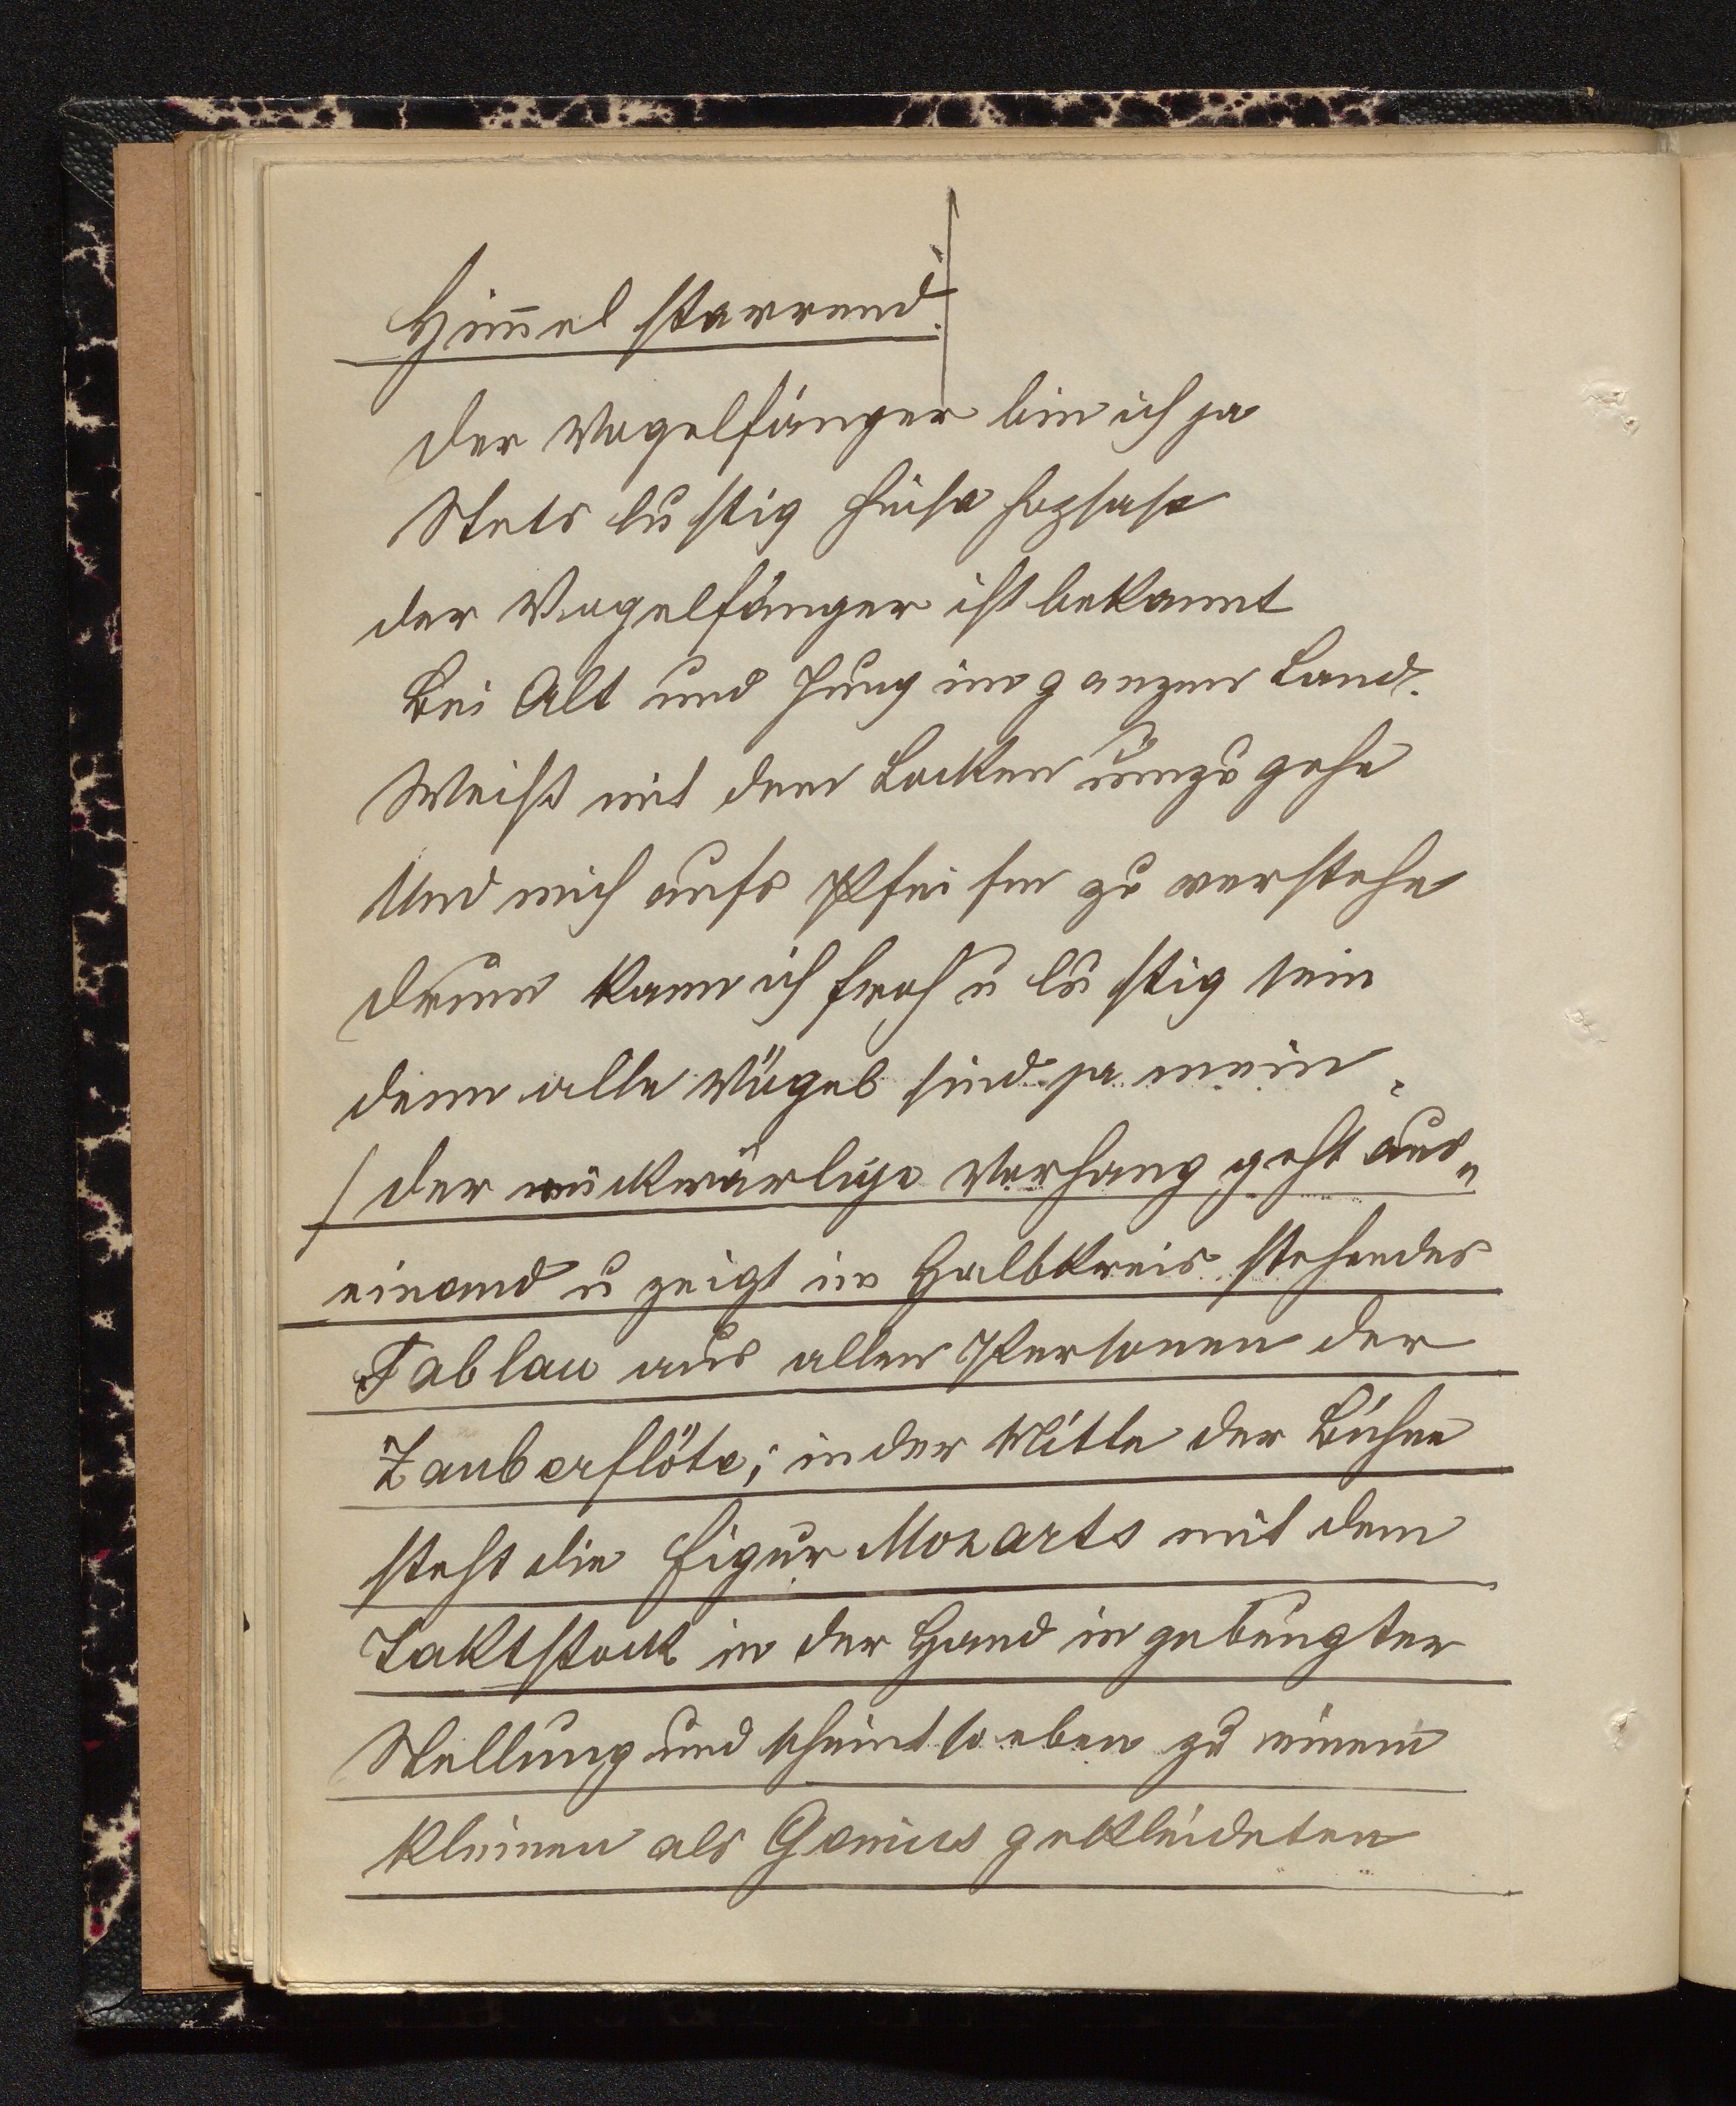 Him̄el starrend.
der Vogelfänger bin ich ja
Stets lustig heisa hopsasa
der Vogelfänger ist bekannt
Bei Alt und Jung im ganzen Land.
Weiß mit dem Locken umzugehn
Und mich aufs Pfeifen zu verstehn
drum kann ich froh u lustig sein
denn alle Vögel sind ja mein.
/der rückwärtige Vorhang geht aus„
einand u zeigt im Halbkreis stehendes
Tablau aus allen Personen der
Zauberflöte; in der Mitte der Bühne
steht die Figur Mozarts mit dem
Taktstock in der Hand in gebeugter
Stellung und scheint soeben zu einem
kleinen als Genius gekleideten